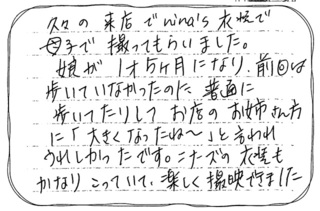 久々の来店でnina's衣装で
母子で撮ってもらいました。
娘が1才5ヶ月になり、前回は
歩いていなかったのに普通に
歩いてたりしてお店のお姉さん方
に「大きくなったね〜」と言われ
うれしかったです。ニナーズの衣装も
かなりこっていて、楽しく撮映できました